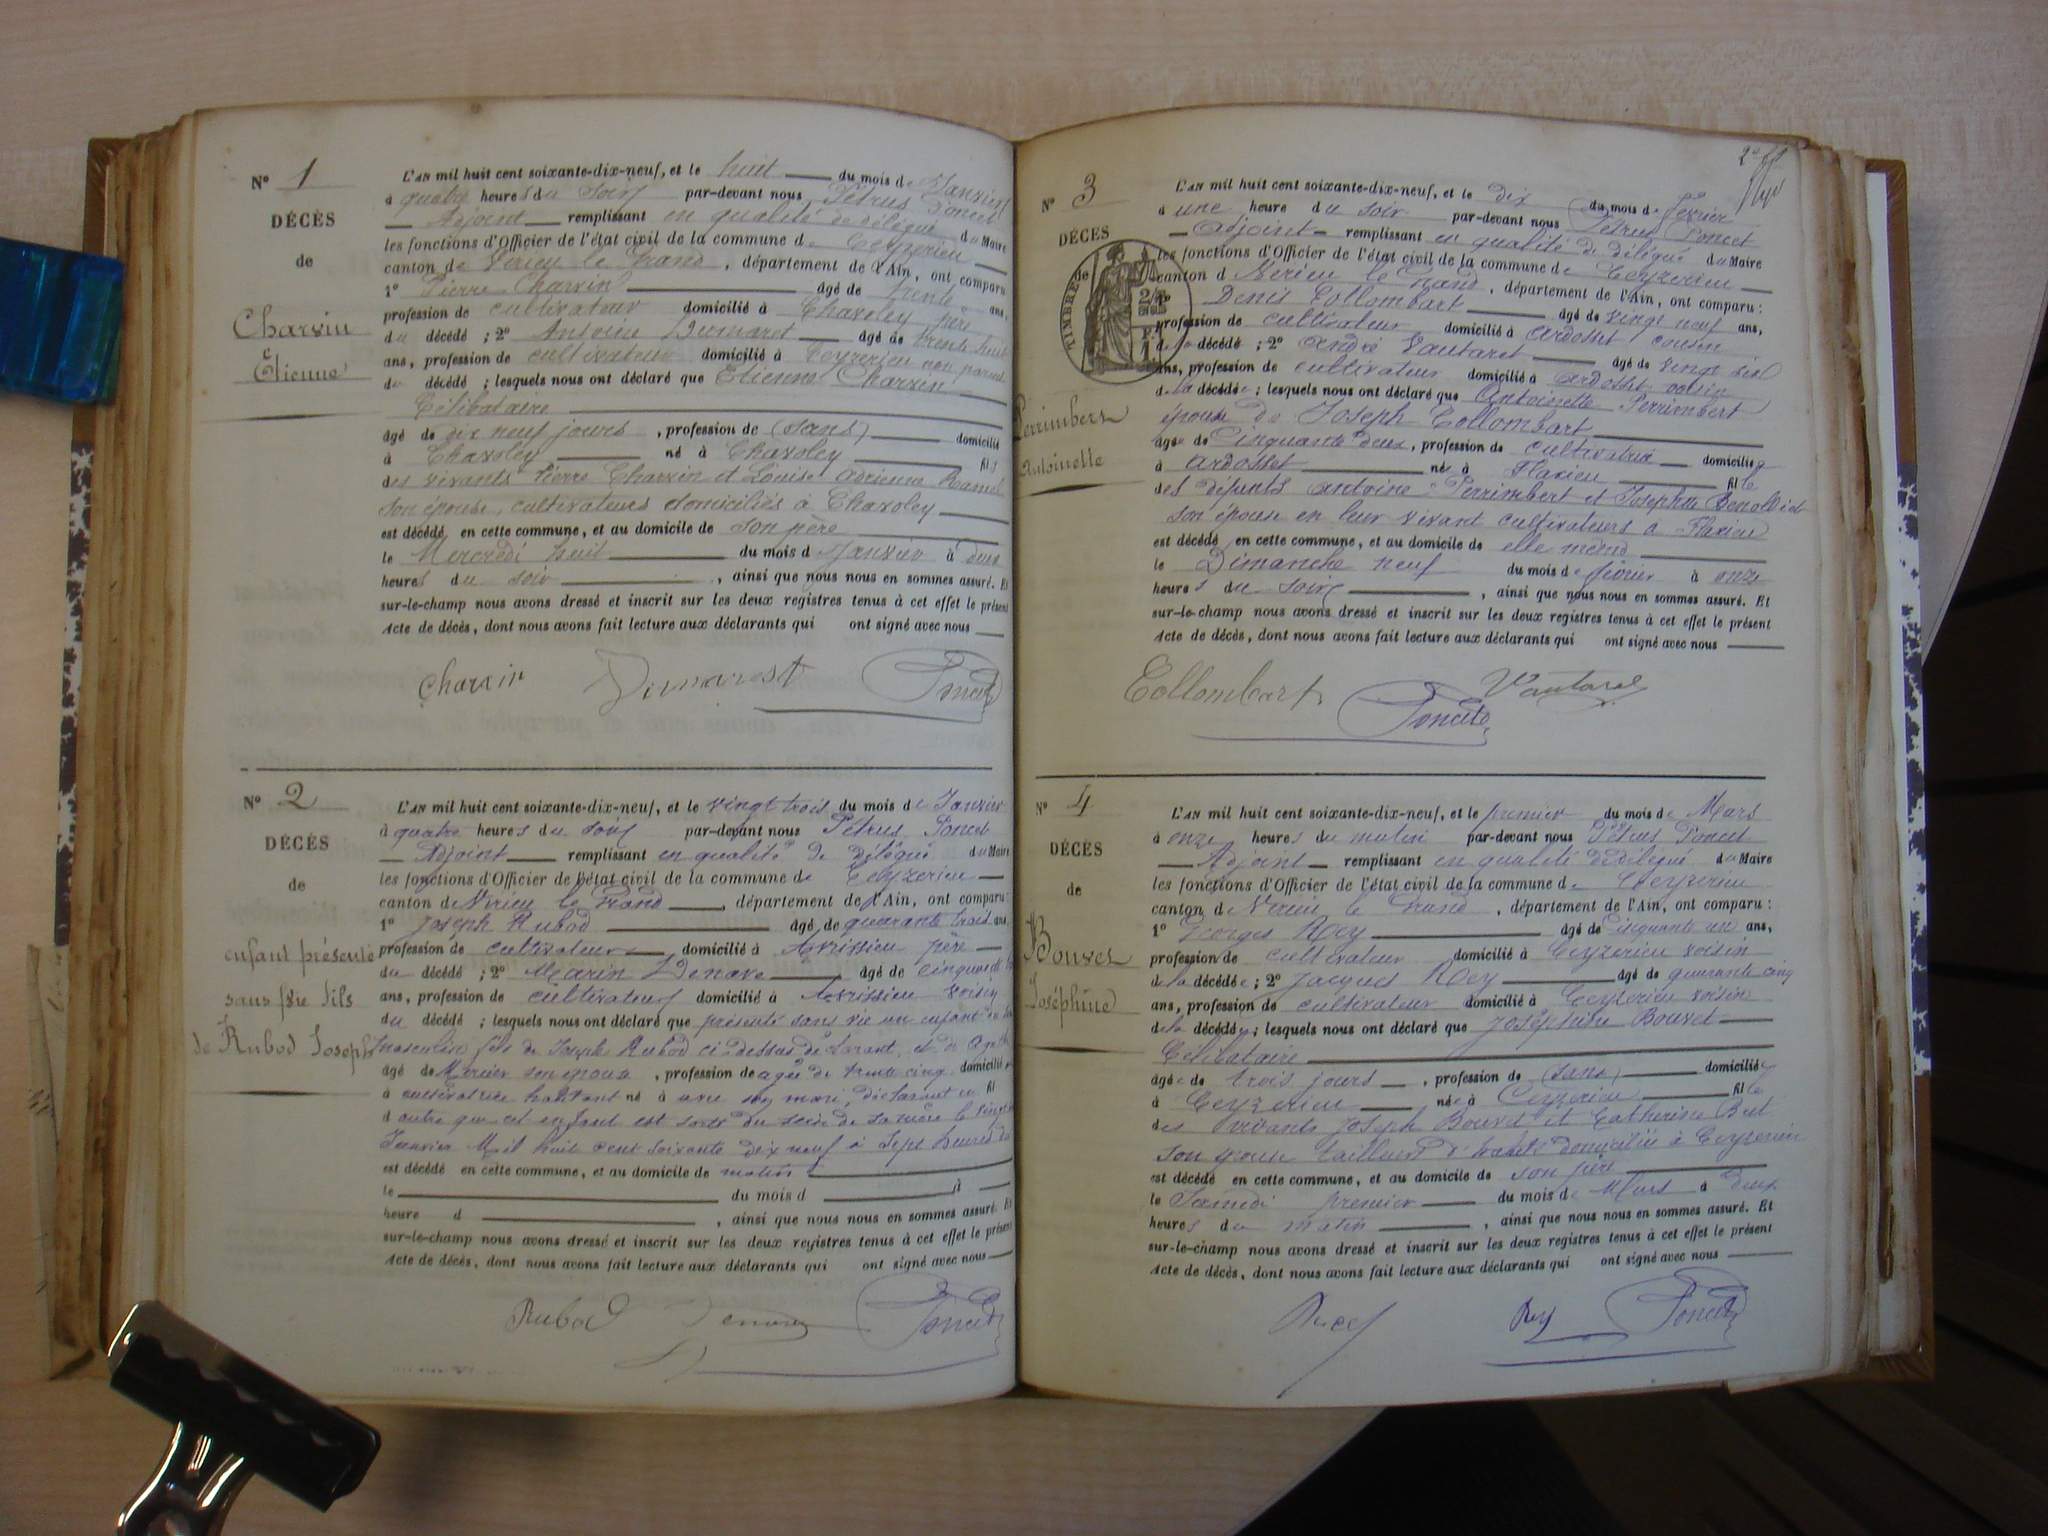 N° 1
DÉCÈS
de
Charvin
Etienne
L'AN mil huit cent soixante-dix-neuf, et le huit du mois de Janvier
à quatre heures du soir par-devant nous Pétrus Poncet
Adjoint remplissant en qualité de délégué du Maire
les fonctions d'Officier de l'état civil de la commune de Ceyzerieu
canton de Virieu le Grand, département de l'Ain, ont comparu
1° Pierre Charvin âgé de trente ans,
profession de cultivateur domicilié à Chavoley père
du décédé ; 2° Antoine Dumarest âgé de trente huit
ans, profession de cultivateur domicilié à Ceyzerieu non parent
du décédé ; lesquels nous ont déclaré que Etienne Charvin
Célibataire
âgé de dix neuf jours, profession de (sans) domicilié
à Chavoley né à Chavoley fils
des vivants Pierre Charvin et Louise Adrienne Ramel
son épouse, cultivateurs domiciliés à Chavoley
est décédé en cette commune, et au domicile de son père
le Mercredi huit du mois d Janvier à deux
heures du soir, ainsi que nous nous en sommes assuré. Et
sur-le-champ nous avons dressé et inscrit sur les deux registres tenus à cet effet le présent
Acte de décès, dont nous avons fait lecture aux déclarants qui ont signé avec nous
Charvin Dumarest Poncet
N° 2
DÉCÈS
de
enfant présenté
sans vie fils
de Rubod Joseph
L'AN mil huit cent soixante-dix-neuf, et le vingt trois du mois de Janvier
à quatre heures du soir par-devant nous Pétrus Poncet
Adjoint remplissant en qualité de délégué du Maire
les fonctions d'Officier de l'état civil de la commune de Ceyzerieu
canton de Virieu le Grand, département de l'Ain, ont comparu :
1° Joseph Rubod âgé de quarante trois ans,
profession de cultivateur domicilié à Avrissieu père
du décédé ; 2° Marin Denave âgé de cinquante
ans, profession de cultivateur domicilié à Avrissieu voisin
du décédé ; lesquels nous ont déclaré que présenté sans vie un enfant
masculin fils de Joseph Rubod ci-dessus déclarant, et de
âgé de Mercier son épouse, profession de agée de trente cinq domicilié
à cultivatrice habitant né à avec son mari, déclarant en fil
d outre que cet enfant est sorti du sein de sa mère le vingt
Janvier Mil huit cent soixante dix neuf à Sept heures du
est décédé en cette commune, et au domicile de matin
le du mois d à
heure d, ainsi que nous nous en sommes assuré. Et
sur-le-champ nous avons dressé et inscrit sur les deux registres tenus à cet effet le présent
Acte de décès, dont nous avons fait lecture aux déclarants qui ont signé avec nous
Rubod Denave Poncet
N° 3
DÉCÈS
de
TIMBRE
Perrimbert
Antoinette
L'AN mil huit cent soixante-dix-neuf, et le dix du mois de Février
à une heure du soir par-devant nous Pétrus Poncet
Adjoint remplissant en qualité de délégué du Maire
les fonctions d'Officier de l'état civil de la commune de Ceyzerieu
canton d Virieu le Grand, département de l'Ain, ont comparu :
1° Denis Collombart âgé de vingt neuf ans,
profession de cultivateur domicilié à Ardosset cousin
de la décédé ; 2° André Vautaret âgé de vingt six
ans, profession de cultivateur domicilié à Ardosset voisin
de la décédée ; lesquels nous ont déclaré que Antoinette Perrimbert
épouse de Joseph Collombart
âgée de Cinquante deux, profession de cultivatrice domiciliée
à Ardosset née à Flaxieu fille
des défunts Antoine Perrimbert et Josephte
son épouse en leur vivant cultivateurs à Flaxieu
est décédé en cette commune, et au domicile de elle même
le Dimanche neuf du mois de février à onze
heures du soir, ainsi que nous nous en sommes assuré. Et
sur-le-champ nous avons dressé et inscrit sur les deux registres tenus à cet effet le présent
Acte de décès, dont nous avons fait lecture aux déclarants qui ont signé avec nous
Collombart Poncet Vautaret
N° 4
DÉCÈS
de
Bouvet
Joséphine
L'AN mil huit cent soixante-dix-neuf, et le premier du mois de Mars
à onze heures du matin par-devant nous Pétrus Poncet
Adjoint remplissant en qualité de délégué du Maire
les fonctions d'Officier de l'état civil de la commune de Ceyzerieu
canton de Virieu le Grand, département de l'Ain, ont comparu :
1° Georges Rey âgé de Cinquante un ans,
profession de cultivateur domicilié à Ceyzerieu voisin
de la décédée ; 2° Jacques Rey âgé de quarante cinq
ans, profession de cultivateur domicilié à Ceyzerieu voisin
de la décédée ; lesquels nous ont déclaré que Joséphine Bouvet
Célibataire
âgée de trois jours, profession de (sans) domiciliée
à Ceyzerieu née à Ceyzerieu fille
des vivants Joseph Bouvet et Catherine But
son épouse tailleurs d'habits domiciliés à Ceyzerieu
est décédé en cette commune, et au domicile de son père
le Samedi premier du mois de Mars à deux
heures du matin, ainsi que nous nous en sommes assuré. Et
sur-le-champ nous avons dressé et inscrit sur les deux registres tenus à cet effet le présent
Acte de décès, dont nous avons fait lecture aux déclarants qui ont signé avec nous
Rey Rey Poncet